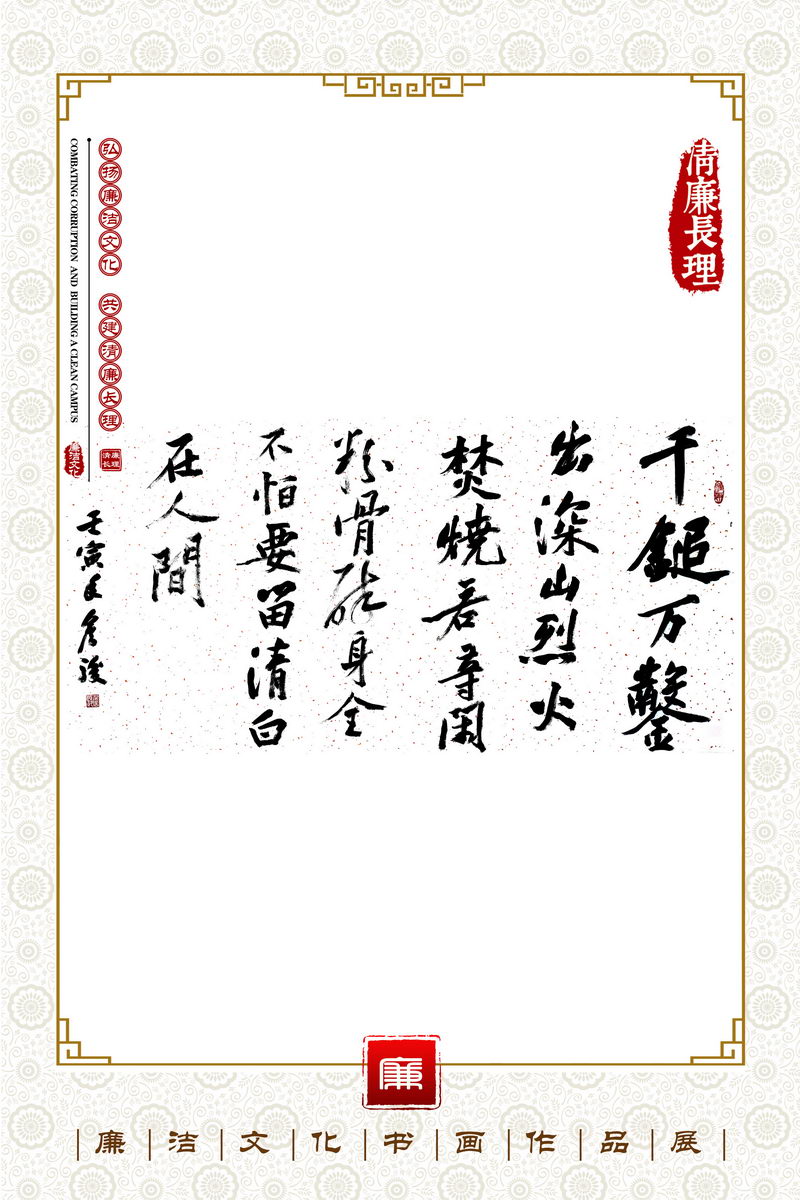 清廉長理
弘扬廉洁文化 共建清廉长理
COMBATING CORRUPTION AND BUILDING A CLEAN CAMPUS
廉洁文化
千鎚万鑿
出深山烈火
焚燒若等閑
粉骨碎身全
不怕要留清白
在人間
壬寅年
廉
廉洁文化书画作品展